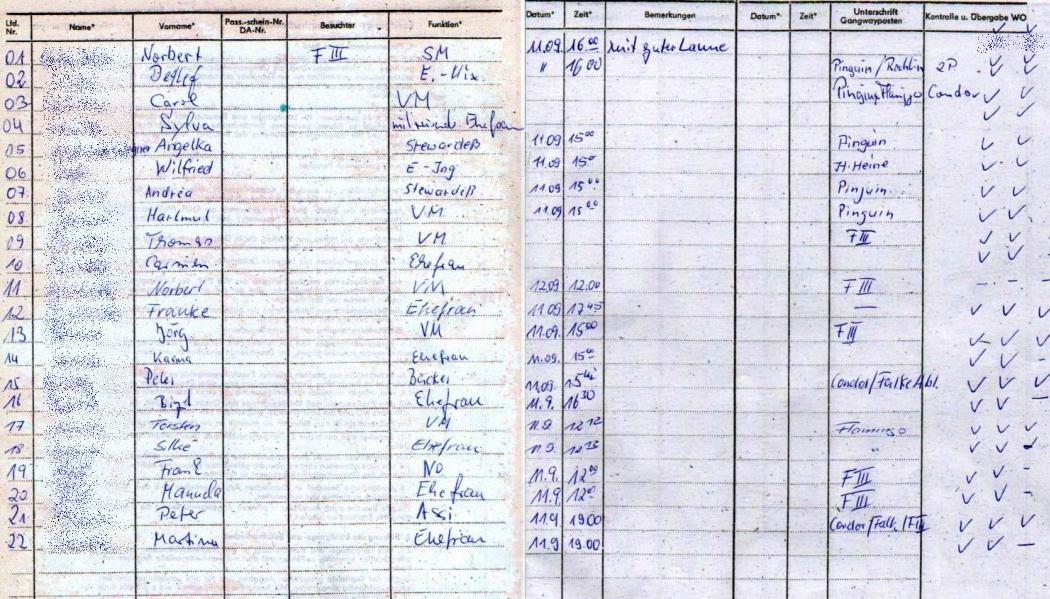 Lfd. Nr. Name* Vorname* Pass.-schein-Nr. DA-Nr. Besuchter Funktion* Datum* Zeit* Bemerkungen Datum* Zeit* Unterschrift Gangwayposten Kontrolle u. Übergabe WO
01 Norbert F III SM 11.09. 16.00 mit guter Laune
02 Detlef E.-Mix. " 16 00 Pinguin / 2P
03 Carol VM Condor
04 Sylva mitreisende Ehefrau
05 Angelka Stewardeß 11.09 15 00 Pinguin
06 Wilfried E-Ing 11.09. 15 00 H. Heine
07. Andrea Stewardeß 11.09 15 00 Pinguin
08 Hartmut VM 11.09 15 00 Pinguin
09 Thomas VM F III
10 Carmen Ehefrau
11 Norbert VM 12.09 12.00 F III
12 Frauke Ehefrau 11.09 17 45
13 Jörg VM 11.09. 15 00 F III
14 Karina Ehefrau 11.09. 15 00
15 Peter Bäcker 11.09 15 Condor/Falke Abl.
16 Ehefrau 11.9. 16 30
17 Torsten VM 11.9. 12 12 Flamingo
18 Silke Ehefrau 11.9. 12 "
19 Frank NO 11.9. 12 00 F III
20 Manuela Ehefrau 11.9 12 00 F III
21 Peter Assi 11.9 19.00 Condor/Falk/F III
22 Martina Ehefrau 11.9 19.00